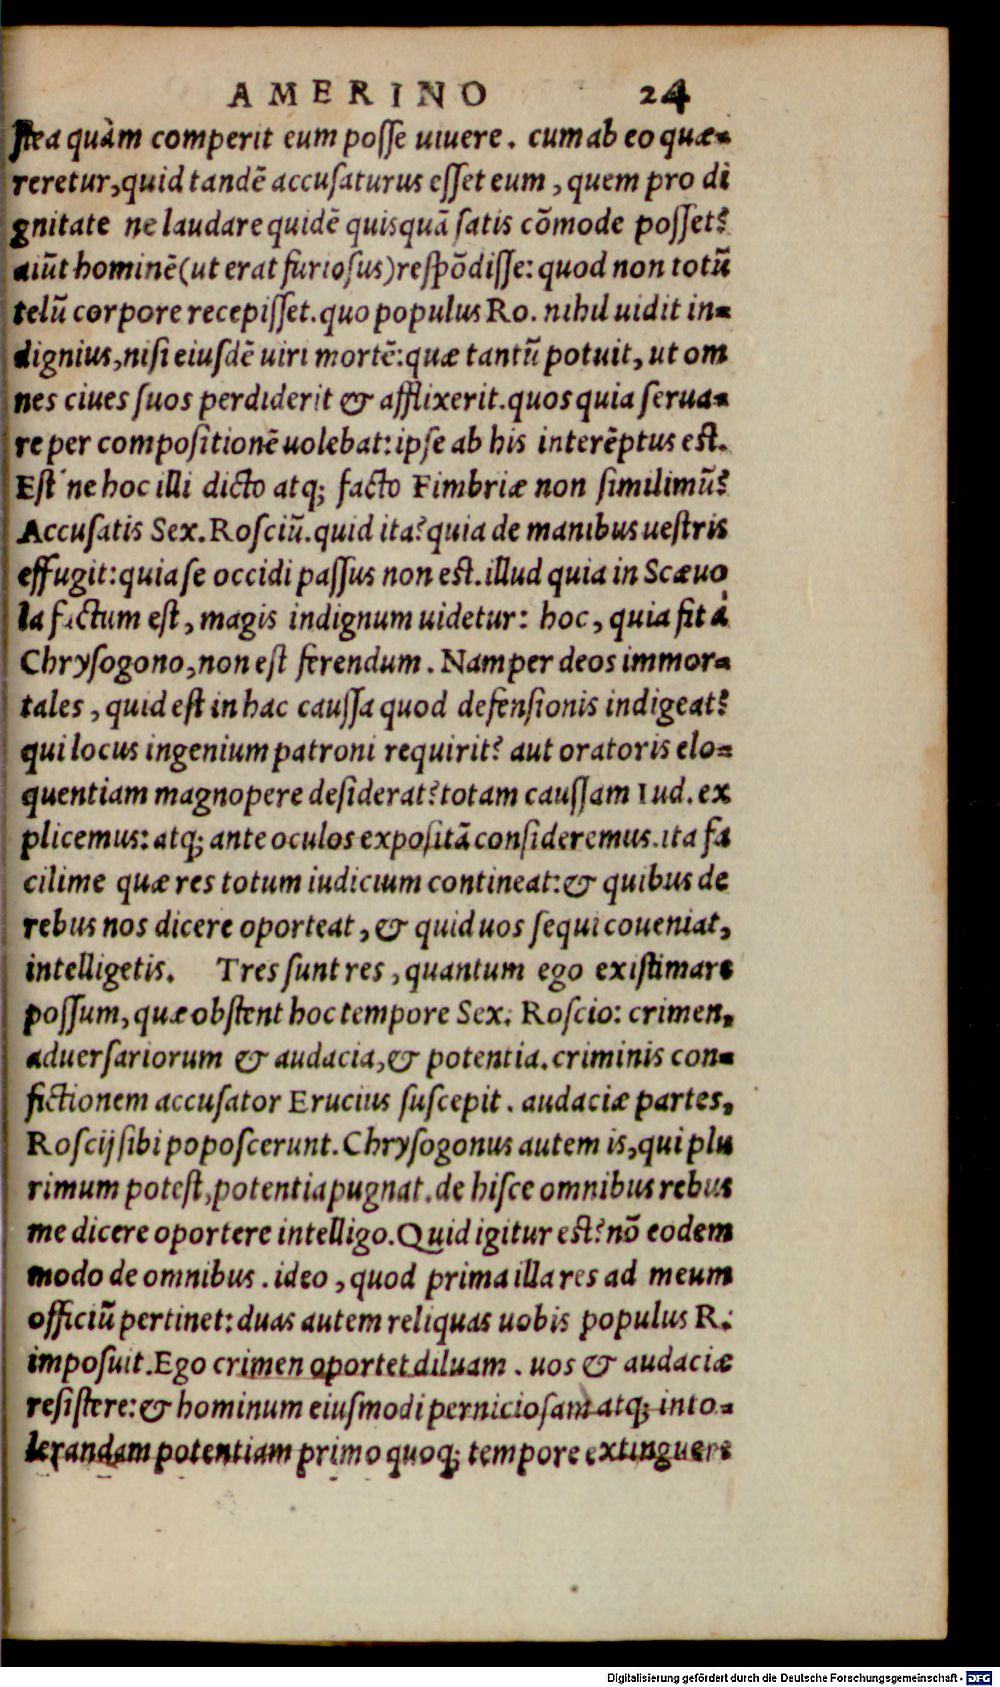 AMERINO 24
ſtea quàm comperit eum poſſe uiuere. cum ab eo quæ-
reretur, quid tandē accuſaturus eſſet eum, quem pro di
gnitate ne laudare quidē quisquā ſatis cōmode poſſet?
aiūt hominē (ut erat furioſus) reſpōdiſſe: quod non totū
telū corpore recepiſſet. quo populus Ro. nihil uidit in-
dignius, niſi eiuſdē uiri mortē: quæ tantū potuit, ut om
nes ciues ſuos perdiderit & afflixerit. quos quia ſerua-
re per compoſitionē uolebat: ipſe ab his interēptus eſt.
Eſt'ne hoc illi dicto atq; facto Fimbriæ non ſimilimū?
Accuſatis Sex. Roſciū. quid ita? quia de manibus ueſtris
effugit: quia ſe occidi paſſus non eſt. illud quia in Scæuo
la factum eſt, magis indignum uidetur: hoc, quia fit à
Chryſogono, non eſt ferendum. Nam per deos immor-
tales, quid eſt in hac cauſſa quod defenſionis indigeat?
qui locus ingenium patroni requirit? aut oratoris elo-
quentiam magnopere deſiderat? totam cauſſam Iud. ex
plicemus: atq; ante oculos expoſitā conſideremus. ita fa
cilime quæ res totum iudicium contineat: & quibus de
rebus nos dicere oporteat, & quid uos ſequi coueniat,
intelligetis. Tres ſunt res, quantum ego exiſtimare
poſſum, quæ obſtent hoc tempore Sex. Roſcio: crimen,
aduerſariorum & audacia, & potentia. criminis con-
fictionem accuſator Erucius ſuſcepit. audaciæ partes,
Roſcij ſibi popoſcerunt. Chryſogonus autem is, qui plu
rimum poteſt, potentia pugnat. de hiſce omnibus rebus
me dicere oportere intelligo. Quid igitur eſt? nō eodem
modo de omnibus. ideo, quod prima illa res ad meum
officiū pertinet: duas autem reliquas uobis populus R.
impoſuit. Ego crimen oportet diluam. uos & audaciæ
reſiſtere: & hominum eiuſmodi pernicioſam atq; into-
lerandam potentiam primo quoq; tempore extinguere
Digitalisierung gefördert durch die Deutsche Forschungsgemeinschaft - DFG